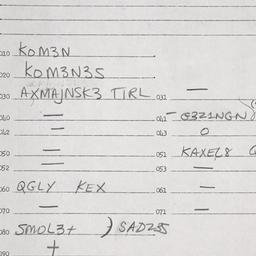 010 KOM3N
020 KOM3N3S
030 AXMAJNSK3 TIRL 031 —
040 = 041 - G3Z1NGN
042 = 043 O
050 = 051 KAXEL8
052 = 053 —
060 QGLY KEX 061 —
070 — 071 —
080 SMOL3+ ) SADZ
090 +